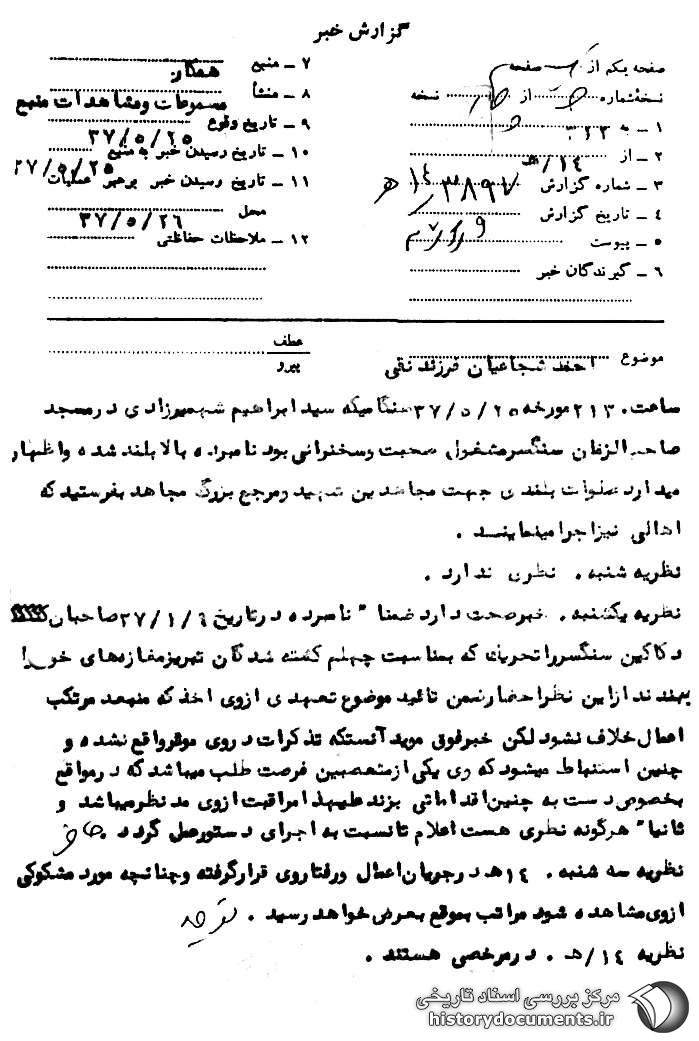 گزارش خبر
صفحه یکم از صفحه
نسخهٔ شماره از نسخه
۱ ـ به ۳۱۲
۲ ـ از ۱۴/هـ
۳ ـ شماره گزارش ۱۴هـ
۴ ـ تاریخ گزارش
۵ ـ پیوست
۶ ـ گیرندگان خبر
۷ ـ منبع همکار
۸ ـ منشأ مسموعات ومشاهدات منبع
۹ ـ تاریخ وقوع ۳۷/۵/۲۵
۱۰ ـ تاریخ رسیدن خبر به منبع ۳۷/۵/۲۵
۱۱ ـ تاریخ رسیدن خبر برهبر عملیات
محل ۳۷/۵/۲۶
۱۲ ـ ملاحظات حفاظتی
موضوع احمد شجاعیان فرزند نقی
عطف
پیرو
ساعت ۲۱۳۰ مورخه ۳۷/۵/۲۵ هنگامیکه سید ابراهیم شهمیرزادی در مسجد
صاحب الزمان سنگسر مشغول صحبت وسخنرانی بود نامبرده بالا بلند شده واظهار
میدارد صلوات بلندی جهت مجاهدین شهید ومرجع بزرگ مجاهد بفرستید که
اهالی نیزاجرا مینمایند .
نظریه شنبه . نظری ندارد .
نظریه یکشنبه . خبرصحت دارد ضمنا" نامبرده درتاریخ ۳۷/۱/۹ صاحبان
دکاکین سنگسررا تحریک که بمناسبت چهلم کشته شدگان تبریزمغازه‌های خودرا
ببندند ازاین نظراحضارضمن تائید موضوع تعهدی ازوی اخذ که منبعد مرتکب
اعمال خلاف نشود لکن خبرفوق موید آنستکه تذکرات در وی موثرواقع نشده و
چنین استنباط میشود که وی یکی ازمتعصبین فرصت طلب میباشد که درمواقع
بخصوص دست به چنین اقداماتی بزند علیهذا مراقبت ازوی مد نظرمیباشد و
ثانیا" هرگونه نظری هست اعلام تانسبت به اجرای دستورعمل گردد .
نظریه سه شنبه . ۱۴هـ درجریان اعمال ورفتاروی قرارگرفته وچنانچه مورد مشکوکی
ازوی مشاهده شود مراتب بموقع بعرض خواهد رسید .
نظریه ۱۴/هـ . درمرخصی هستند .
مرکز بررسی اسناد تاریخی
historydocuments.ir